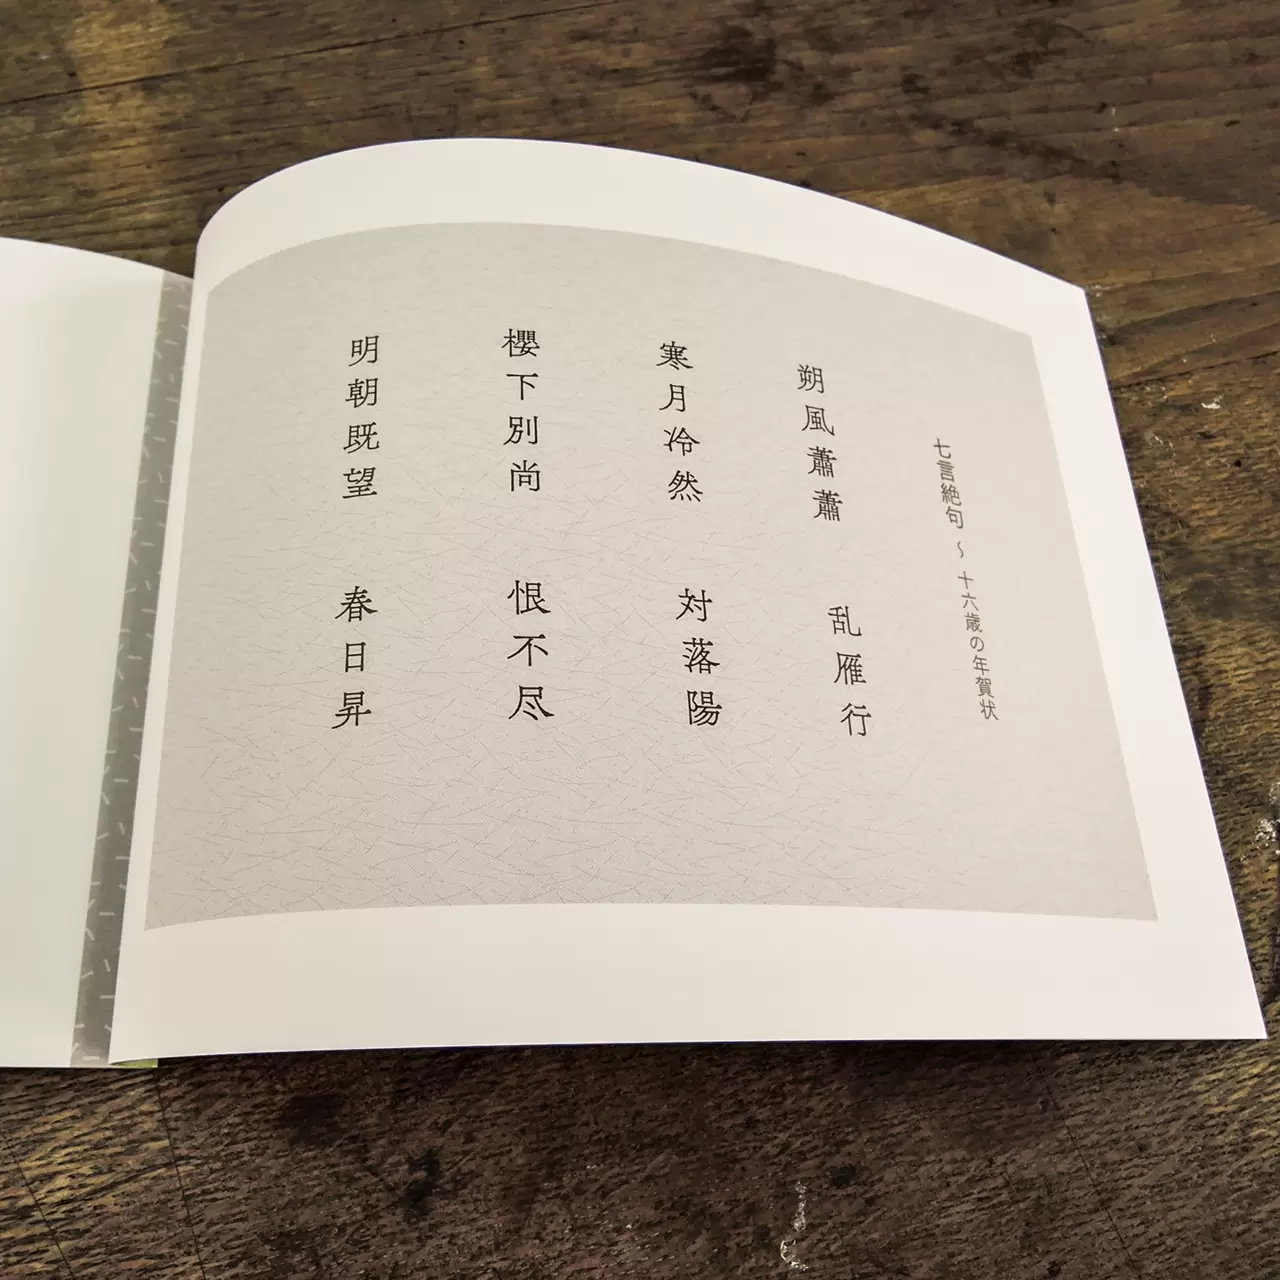 七言絶句 ～ 十六歳の年賀状
朔風蕭蕭 乱雁行
寒月冷然 対落陽
櫻下別尚 恨不尽
明朝既望 春日昇